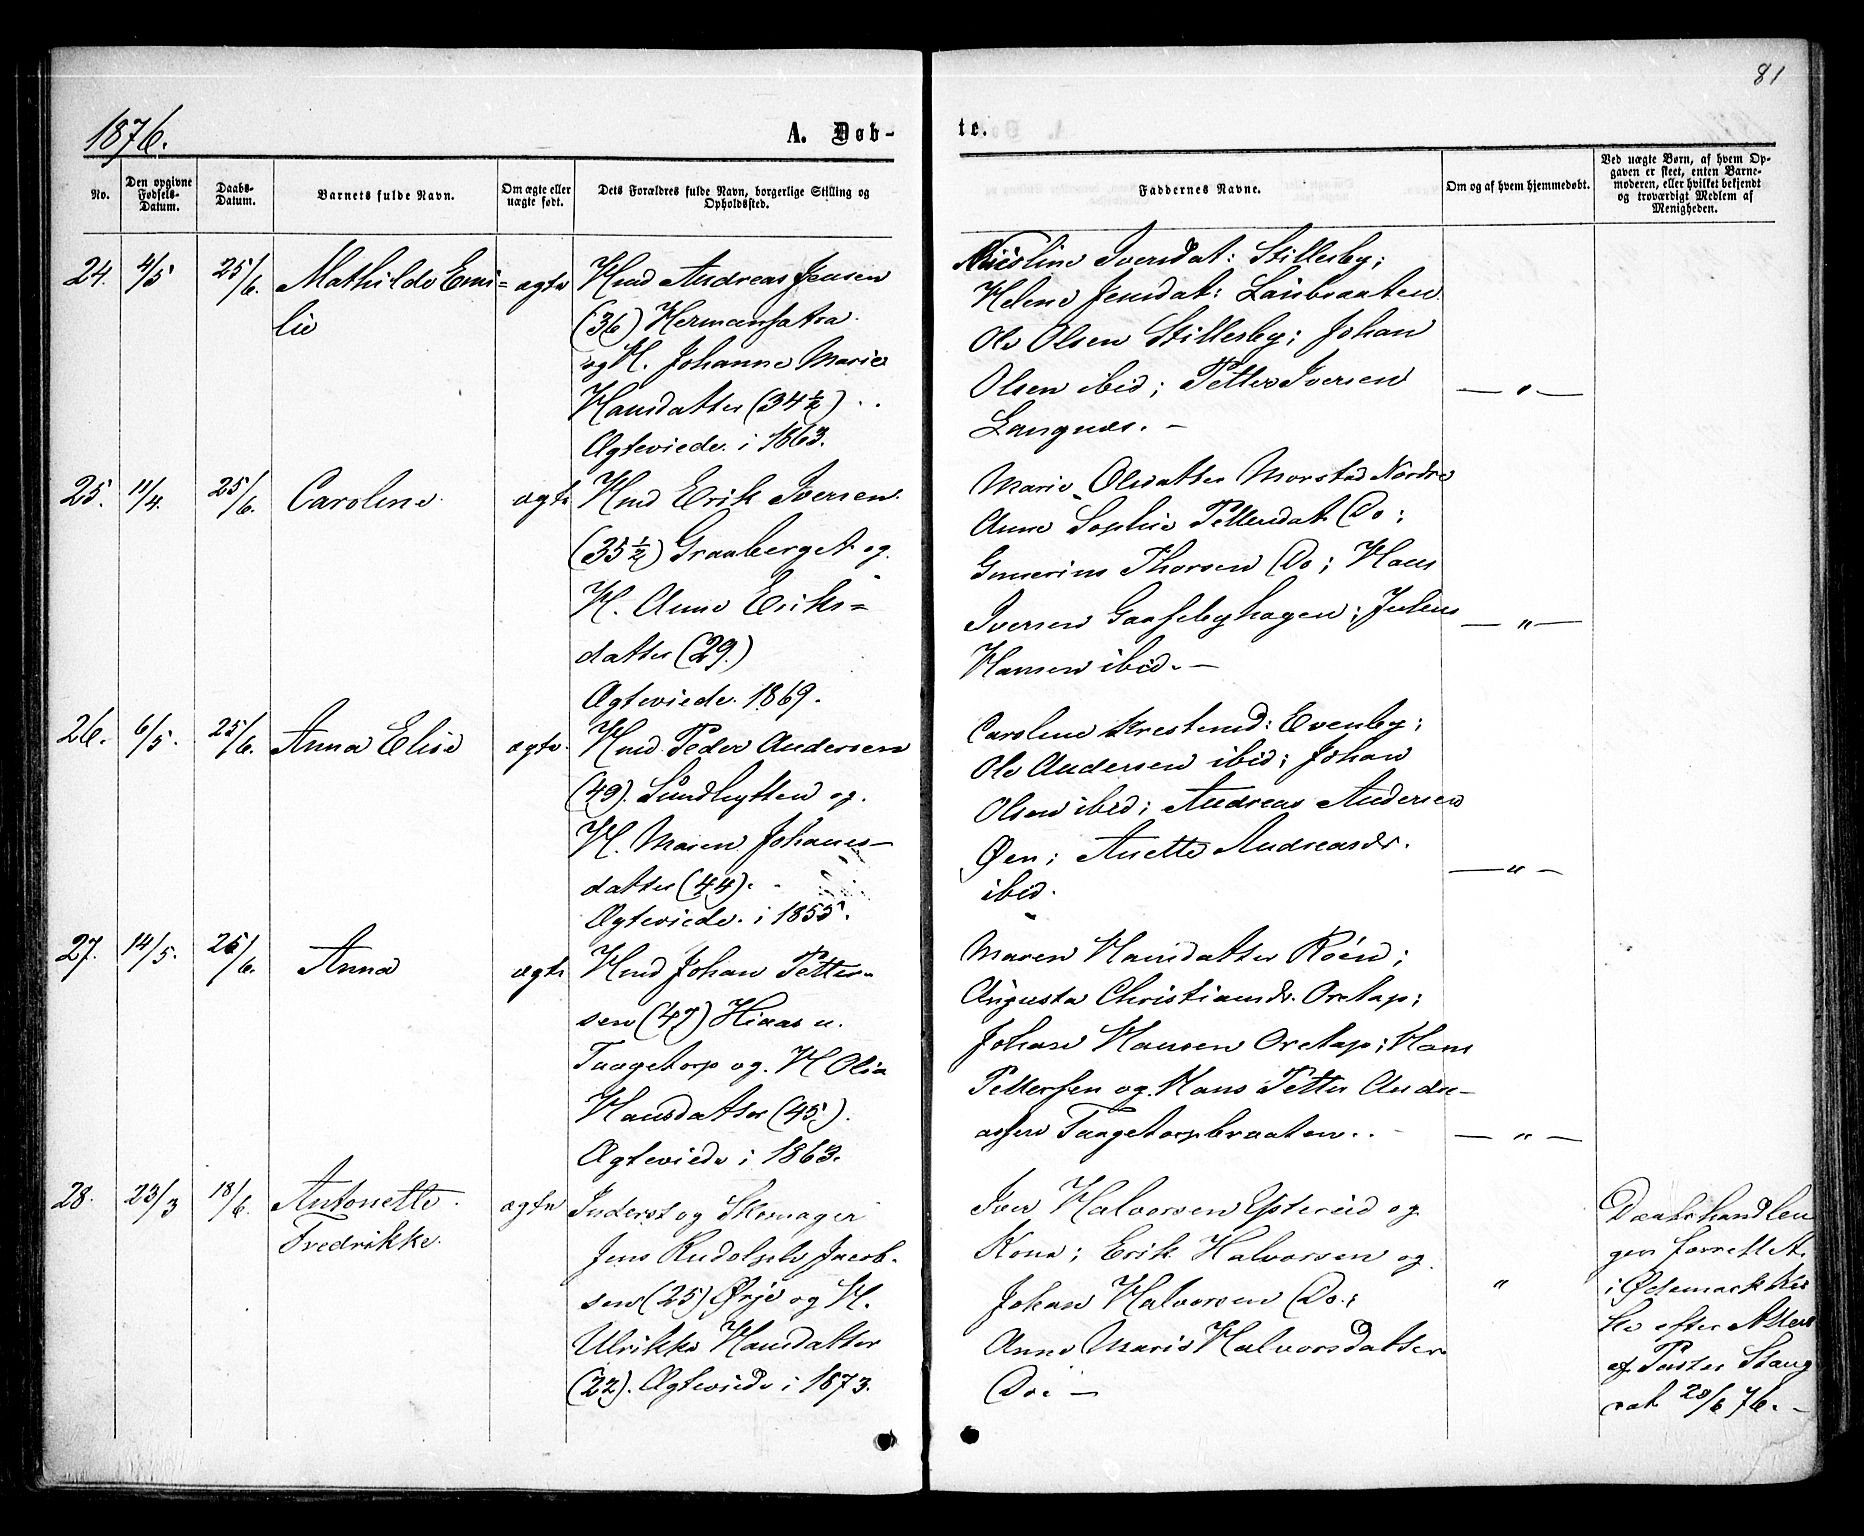 81
1876.
A. Døb-
te.
No.
Den opgivne Fødsels-Datum.
Daabs-Datum.
Barnets fulde Navn.
Om ægte eller uægte født.
Dets Forældres fulde Navn, borgerlige Stilling og Opholdssted.
Faddernes Navne.
Om og af hvem hjemmedøbt.
Ved uægte Børn, af hvem Op-
gaven er skeet, enten Barne-
moderen, eller hvilket bekjendt
og troværdigt Medlem af
Menigheden.
24. 4/5 25/6. Mathilde Emi- ægte Hmd Andreas Jensen
lie
(36) Hermansætra.
og H. Johanne Marie
Hansdatter (34½)
Ægteviede i 1863.
Iversdat: Stillesby;
Helene Jensdat: Laubraaten
Ole Olsen Stillesby; Johan
Olsen ibid; Petter Iversen
Langnæs. -
— " —
25. 11/4. 25/6. Caroline ægte Hmd Erik Iversen
(35½) Graaberget og
H. Anne Eriks=
datter (29.)
Ægteviede 1869.
Marie Olsdatter Morstad Nordre
Anne Sophie Pettersdat Do;
Gunerius Thorsen Do; Hans
Iversen Gaasebyhagen; Julius
Hansen ibid. -
— " —
26. 6/5. 25/6. Anna Elise ægte. Hmd. Peder Andersen
(49). Sundhytten og
H. Maren Johanes-
datter (44).
Ægteviede i 1855.
Caroline Krestensd: Evenby;
Ole Andersen ibid; Johan
Olsen ibid; Andreas Andersen
Øen; Anette Andreasdr.
ibid.
— " —
27. 14/5. 25/6. Anna ægte Hmd Johan Petter-
sen (47) Hiaas u.
Taagetorp og H Olia
Hansdatter (45).
Ægteviede i 1863.
Maren Hansdatter Röen;
Augusta Christiansdr. Oretap;
Johan Hansen Oretap; Hans
Pettersen og Hans Petter Andre-
assen Taagetorpbraaten.
— " —
28. 23/3 18/6. Antonette ægte Inderst og Skomager
Fredrikke.
Jens Rudolph Jacob-
sen (25) Ørje og H.
Ulrikke Hansdatter
(22). Ægteviede i 1873.
Iver Halvorsen Ysterud og
Kone; Erik Halvorsen og
Johan Halvorsen Do.;
Anne Marie Halvorsdatter
Do: -
"
Daabshandlen
gen forrettet
i Ødemark Kir
ke efter Attest
af Pastor Stang
rak 20/6 76. -